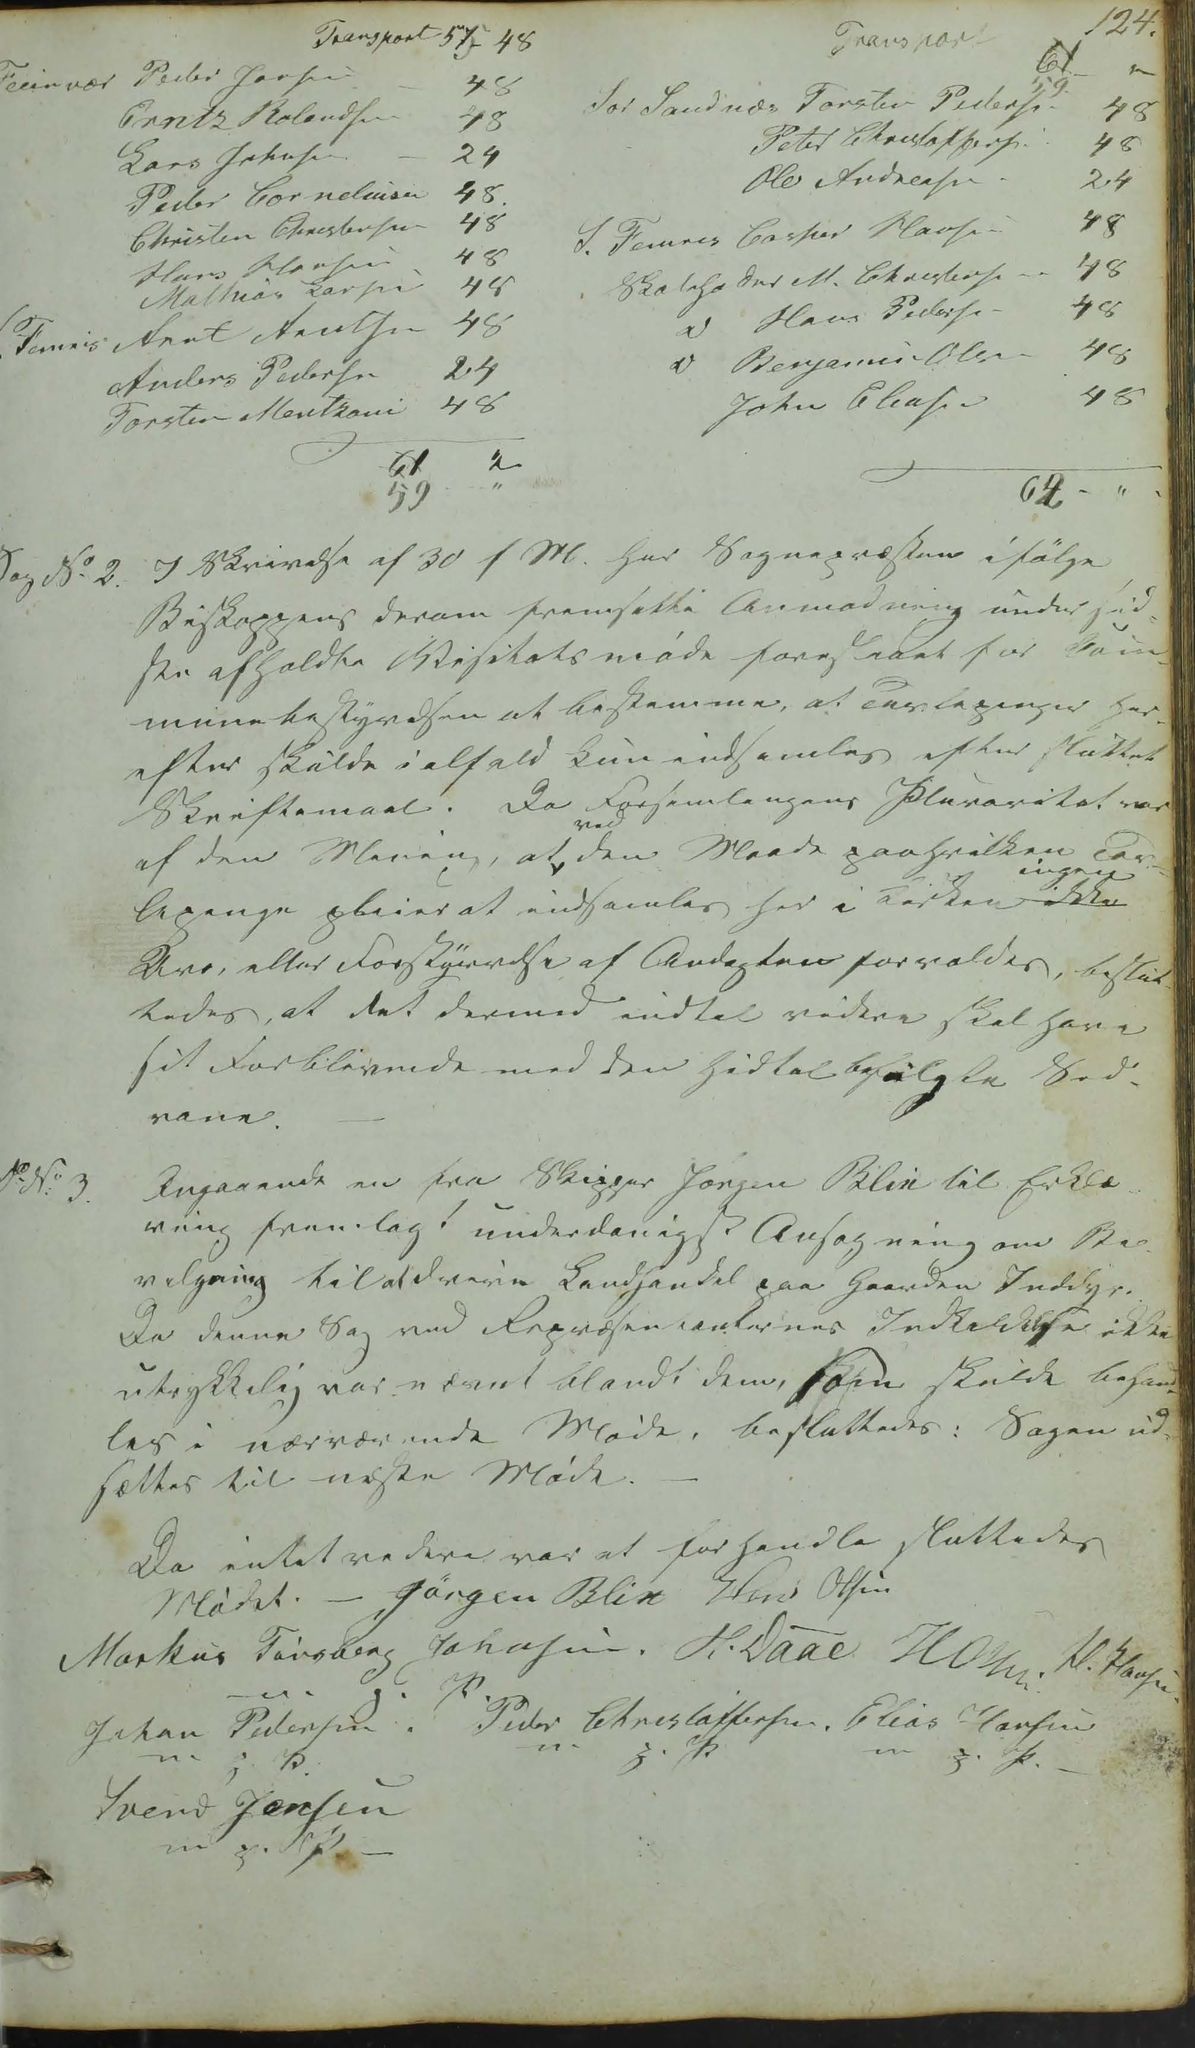 124.
Transport 57 - 48
Feinvær Peder Jansen - 48
Erntz Rolandsen 48
Lars Johnsen - 24
Peder Cornelius 48.
Christen Christensen 48
Hans Hansen 48
Mathias Larsen 48
Femris Arnt Arntsen 48
Anders Pedersen 24
Torsten Mentzoni 48
61 "
59 "
Transport 61 - "
59
Sør Sandnæs Torsten Pedersen 48
Peter Christoffersen 48
Ole Andreasen - 24
S. Femris Casper Hansen 48
M. Christensen - 48
Hans Pedersen - 48
Benjamin Olsen - 48
John Eliasen 48
64 - " -
Sag No. 2. I Skrivelse af 30 f. M. har Sognepræsten ifölge
Biskoppens derom fremsatte Anmodning under sid-
ste afholdte Visitatsmöde foreslaaet for Com-
munebestyrelsen at bestemme, at Tavlepenger her-
efter skulde ialfald kun indsamles efter sluttet
Skriftemaal. Da Forsamlingens Pluraritet var
af den Mening, at ved den Maade paa hvilken Tav-
lepenge pleier at indsamles her i Kirken ikke ingen
eller Forstyrrelse af Andagten forvoldes, beslut-
tedes, at det dermed indtil videre skal have
sit Forblivende med den hidtil befulgte Sed-
vane. -
No. 3. Angaaende en fra Skipper Jørgen Blix til Erklæ-
ring fremlagt underdanigst Ansøgning om Be-
vilgning til at drive Landhandel paa Gaarden Inddyr.
Da denne Sag ved Repræsentanternes Indkaldelse ikke
utrykkelig var nævnt blandt dem, som skulde behand-
les i nærværende Möde, besluttedes: Sagen ud-
sættes til næste Möde. -
Da intet videre var at forhandle sluttedes
Mødet. - Jörgen Blix Olsen
Markus Johnsen. H. Daae H. Hansen
m. p. P.
Johan Pedersen. Peder Christoffersen. Elias Hansen
m. p. P. m p. P m p. P. -
Svend Jensen
m p. P -